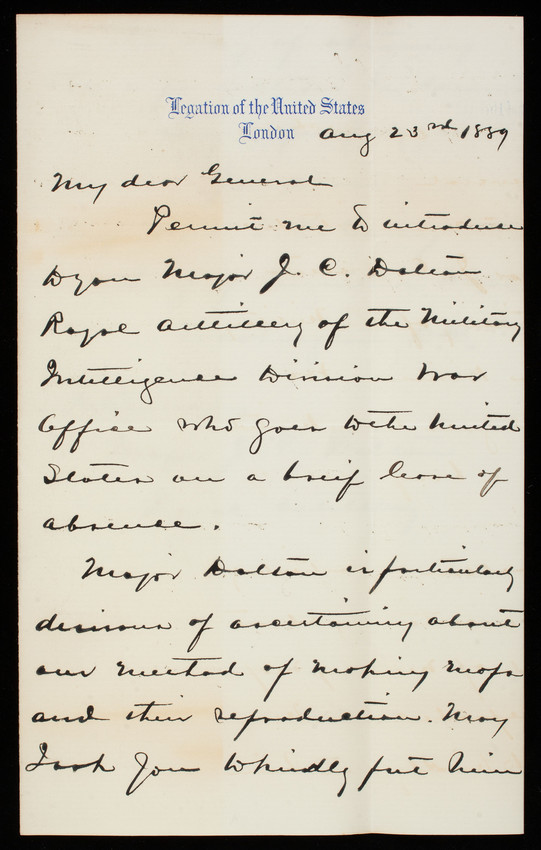 Legation of the United States
London Aug 23rd 1889
My dear General
Permit me to introduce
to you Major J. C. Dalton
Royal Artillery of the Military
Intelligence Division War
Office who goes to the United
States on a brief leave of
absence.
Major Dalton is particularly
desirous of ascertaining about
our method of making maps
and their reproduction. May
I ask you to kindly put him